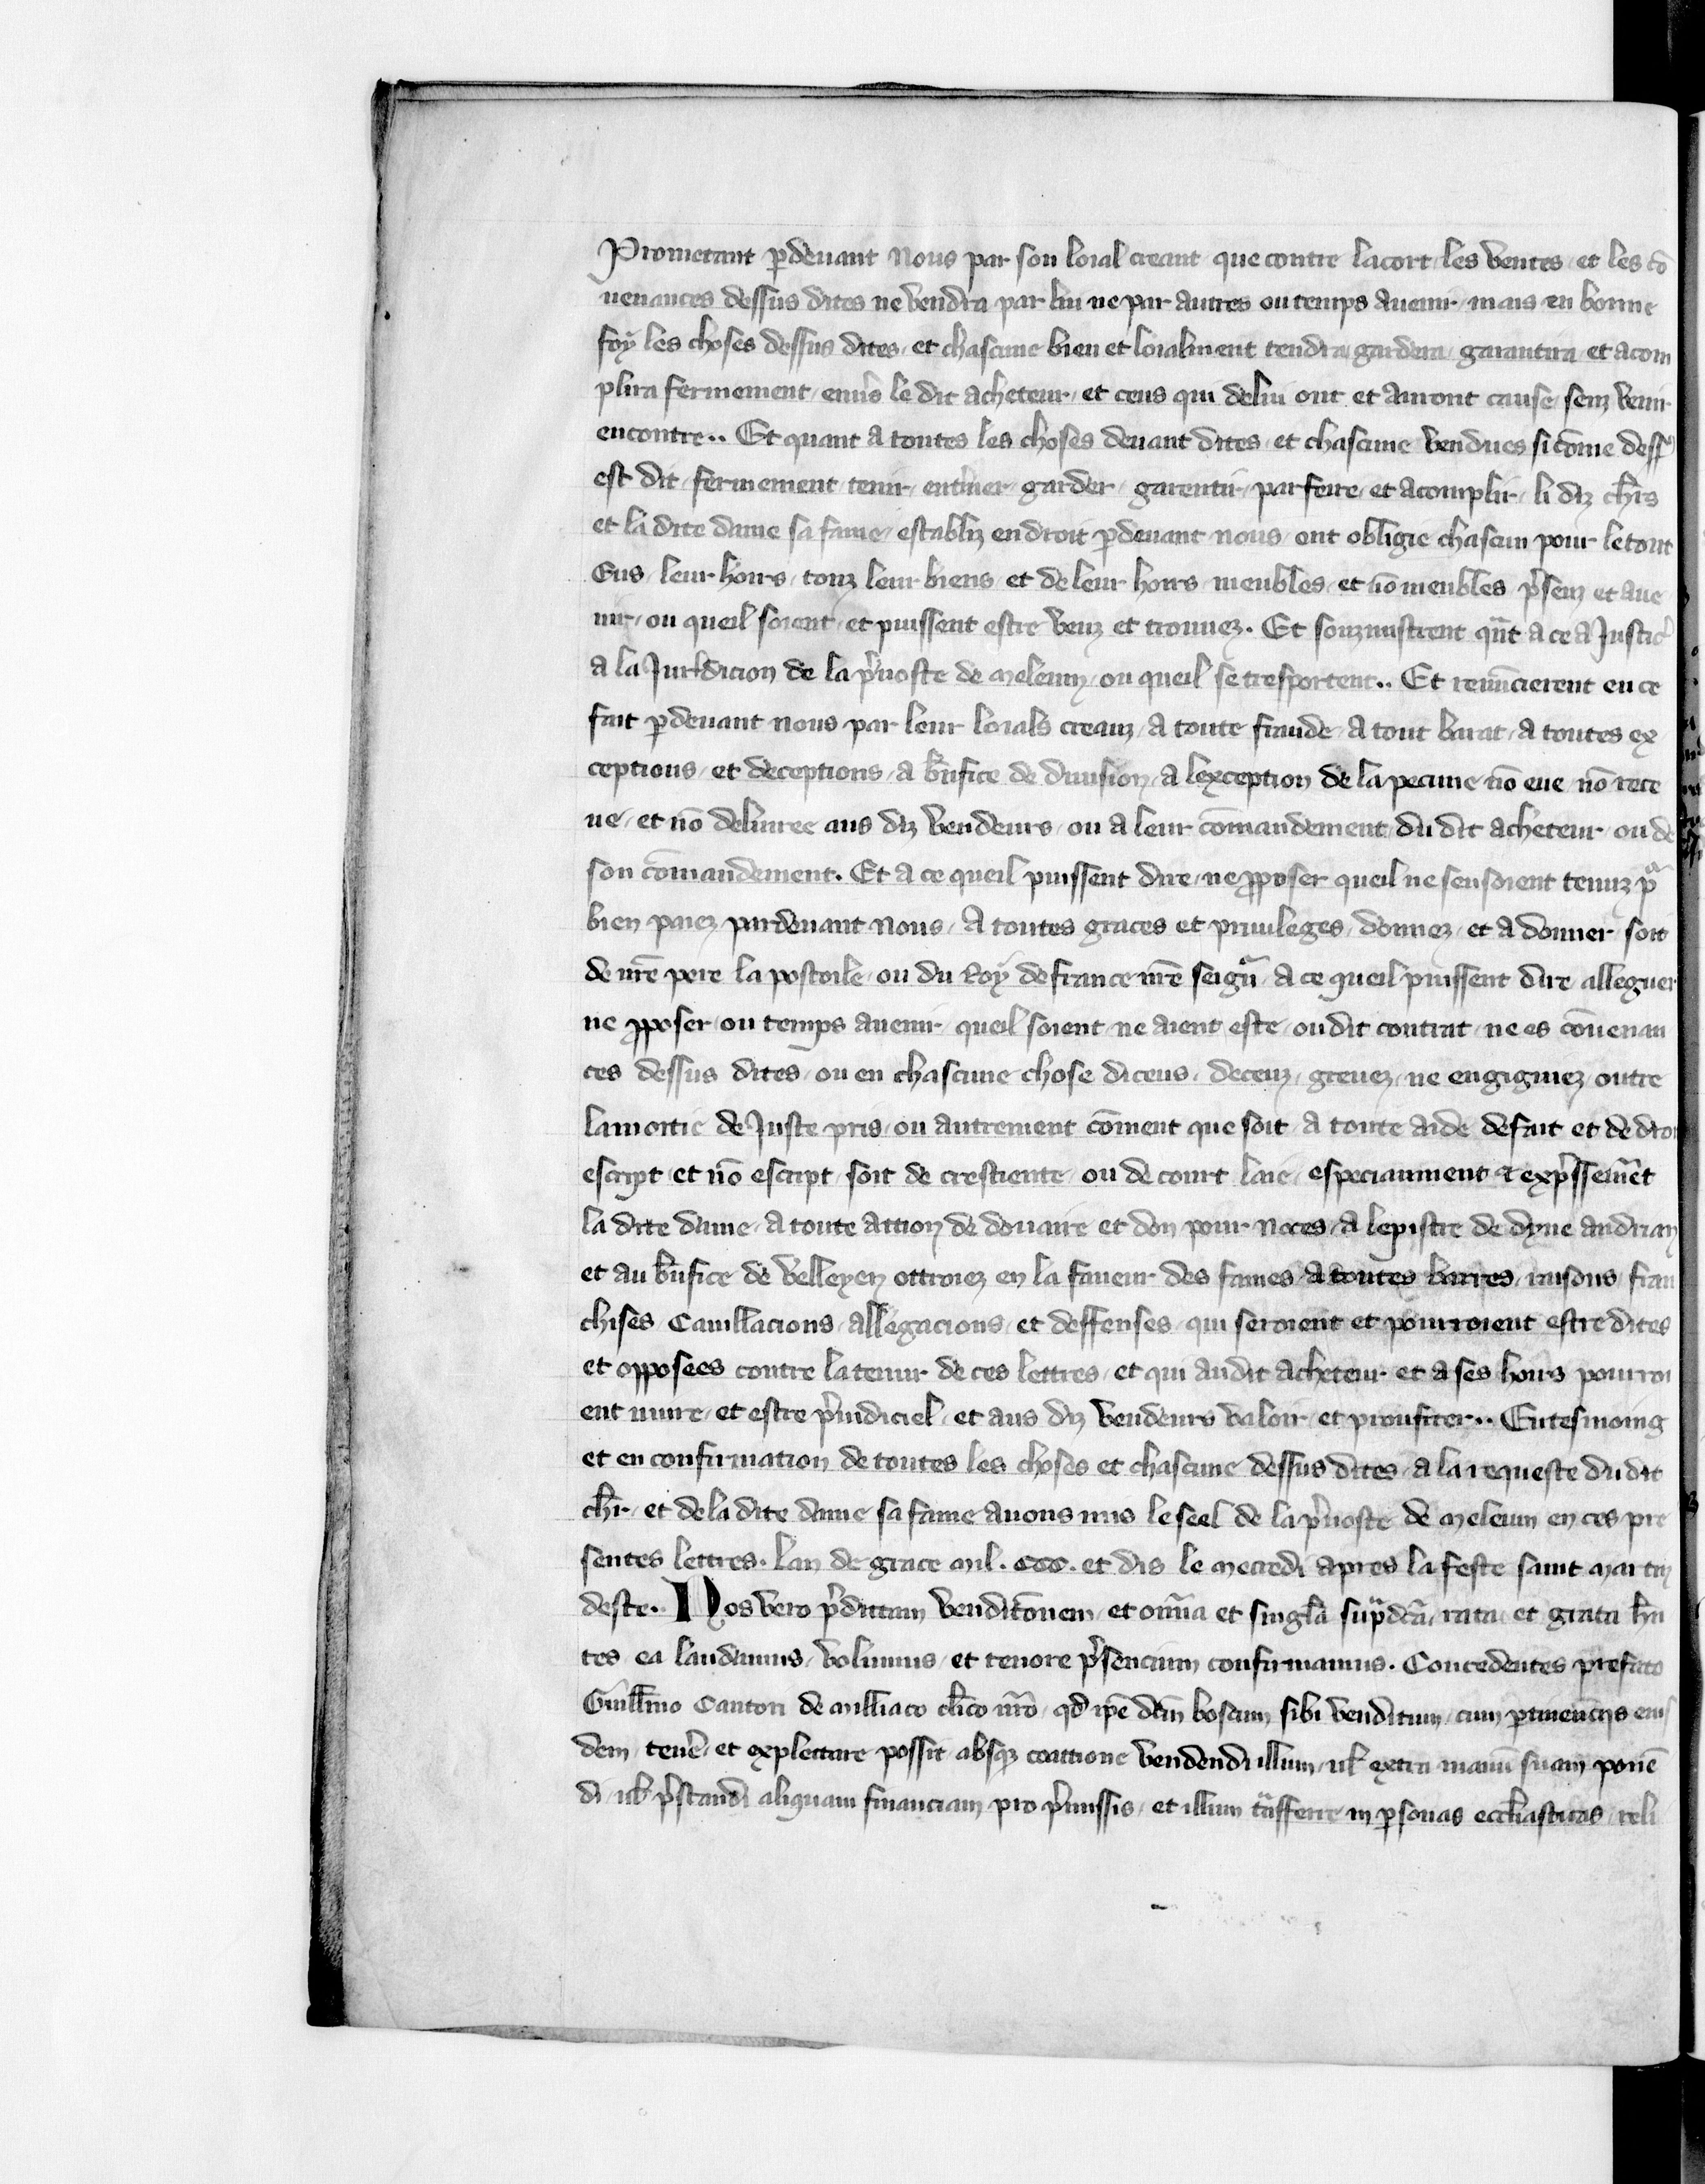 Prometant p̱deuant nous par son loial creant que contre lacort les ventes et les cō
uenances dessus dites ne vendra par lui ne par autres ou temps auenir mais en bonne
foy les choses dessus dites et chascune bien et loialment tendra gardera garantira et acom
plira fermement enuˀs le dit acheteur et ceus qui de lui ont et auront cause senz venir
encontre.. Et quant a toutes les choses deuant dites et chascune vendues si cōme dess᾿
est dit fermement tenir entˀiner garder garentir parfeire et acomplir li diz chˡrs
et la dite dame sa fame establiz endroit p̱deuant nous ont obligie chascun pour le tout
Eus leur hoirs touz leur biens et de leur hoirs meubles et nō meubles pˀsenz et aue
nir ou queil soient et puissent estre veuz et trouuez. Et souzmistrent qūt a ce a Justicˀ
a la Juridicion de la pˀuoste de Meleun ou queil se tresportent.. Et renūcierent en ce
fait p̱deuant nous par leur loials creanz a toute fraude a tout barat a toutes ex
ceptions et deceptions a bn̄fice de diuision a lexception de la pecune nō eue nō rece
ue et nō deliuree aus diz vendeurs ou a leur cōmandement du dit acheteur ou de
son cōmandement. Et a ce queil puissent dire ne p̱poser queil ne sensoient tenuz pͣ
bien paiez pardeuant nous A toutes graces et priuileges donnez et a donner soit
de nr̄e pere lapostoile ou du Roy de france nr̄e seigᷣ a ce queil puissent dire alleguer
ne p̱poser ou temps auenir queil soient ne aient este ou dit contrat ne es cōuenan
ces dessus dites ou en chascune chose diceus deceuz greuez ne engigniez outre
lamoitie de Juste pris ou autrement cōment que soit a toute aide de fait et de droi
escript et nō escript soit de crestiente ou de court laie especiaument et expˀssemēt
la dite dame a toute action de douaire et don pour noces a lepistre de dyue andrian
et au bn̄fice de velleyen ottroiez en la faueur des fames a toutes barres raisons fran
chises Cauillacions allegacions et deffenses qui seroient et pourroient estre dites
et opposees contre la tenur de ces lettres et qui audit acheteur et a ses hoirs pourroi
ent nuire et estre pˀiudiciel et aus diz vendeurs valoir et proufiter.. En tesmoing
et en confirmation de toutes les choses et chascune dessus dites a la requeste du dit
chˡr et de la dite dame sa fame auons mis le seel de la pˀuoste de Meleun en ces pre
sentes lettres. lan de grace mil. CCC. et dis le mecredi apres la feste saint martin
deste. Nos vero pˀdictam venditōnem et om̄ia et singˡa supᷓdcā rata et grata hn̄
tes ea laudamus volumus et tenore pˀsencium confirmamus. Concedentes prefato
Guillˡmo Cantori de milliaco clˡico nr̄o qd̄ ip̄e dcm̄ boscum sibi venditum cum p̱tinenciis eius
dem tenˀe et explectare possit absqꝫ coactione vendendi illum uˡ extra manū suam ponē
di uˡ pˀstandi aliquam financiam pro pˀmissis et illum tᷓsferre in p̱sonas eccˡiasticas reli